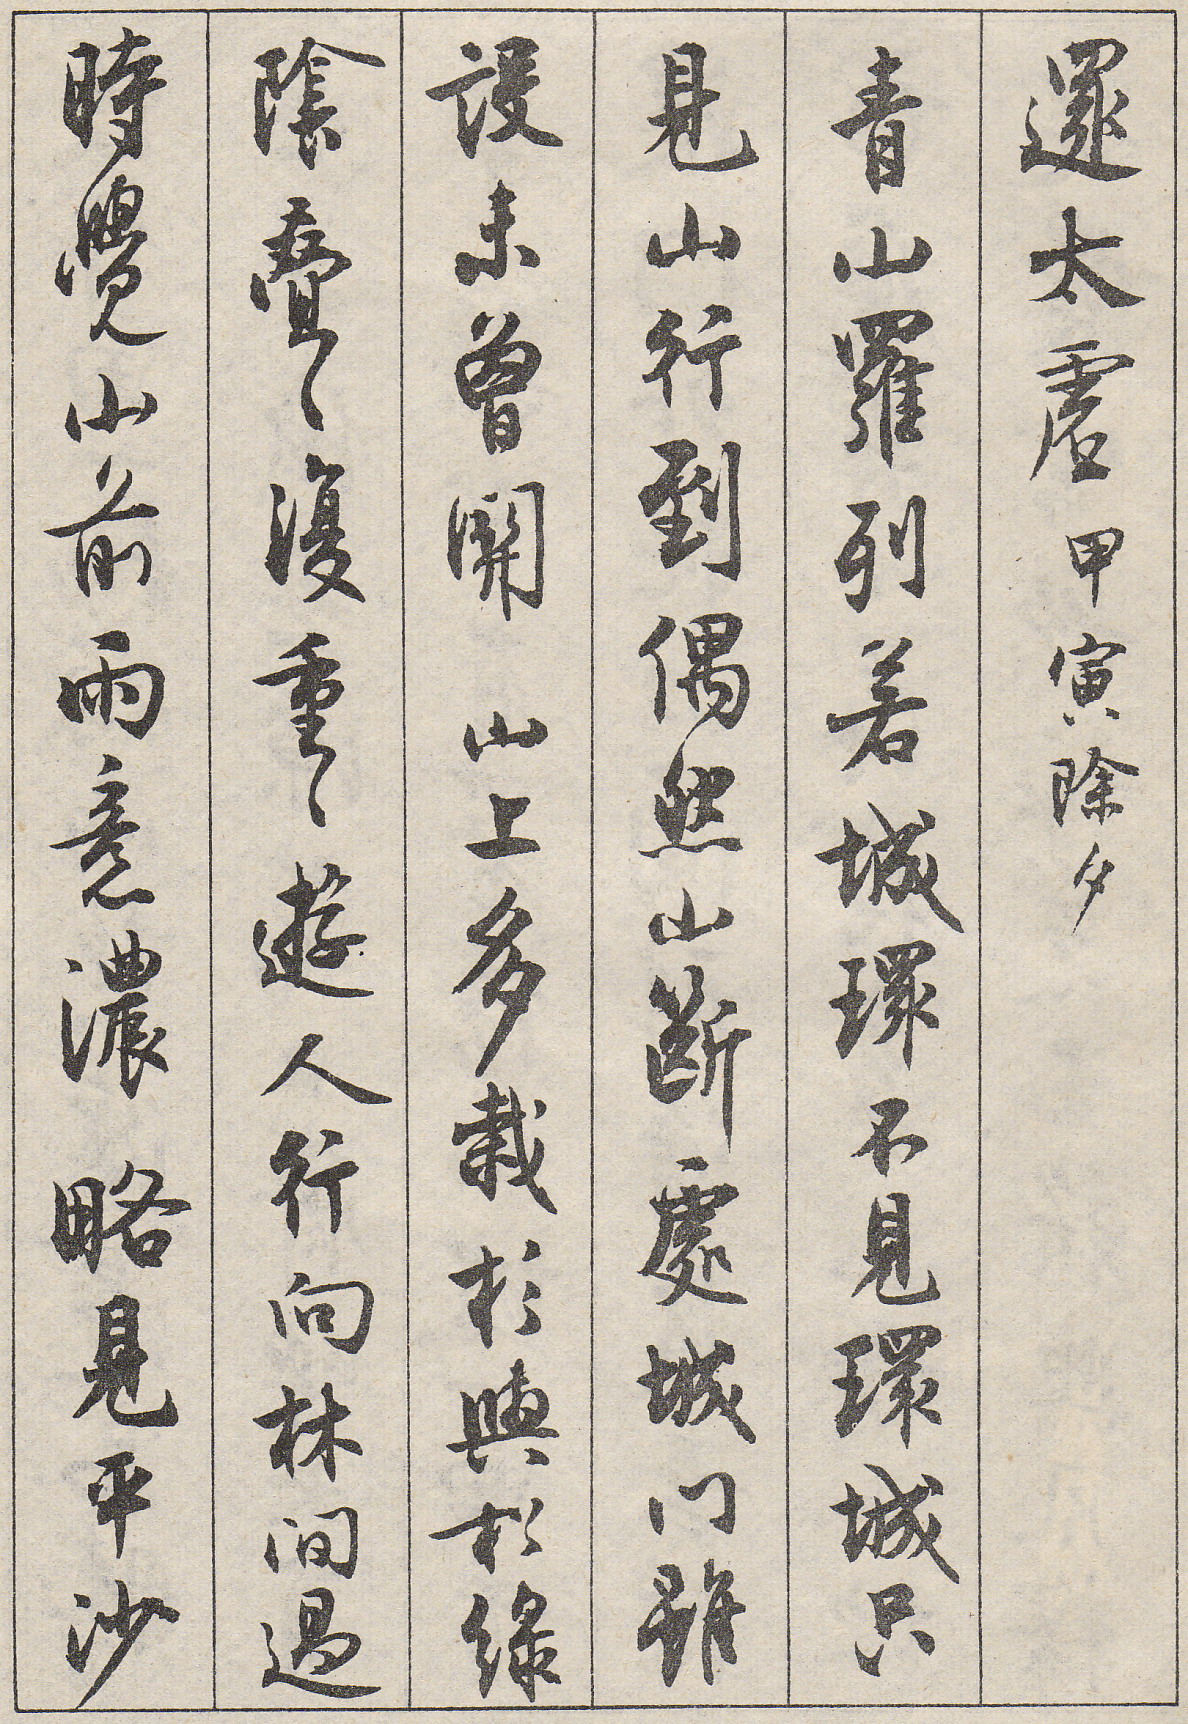 還太虛 甲寅除夕
青山羅列若城環不見環城只
見山行到偶然山斷處城門雖
設未曾關 山上多栽杉與松綠
陰疊〻復重〻遊人行向林間過
時覺山前雨意濃 略見平沙